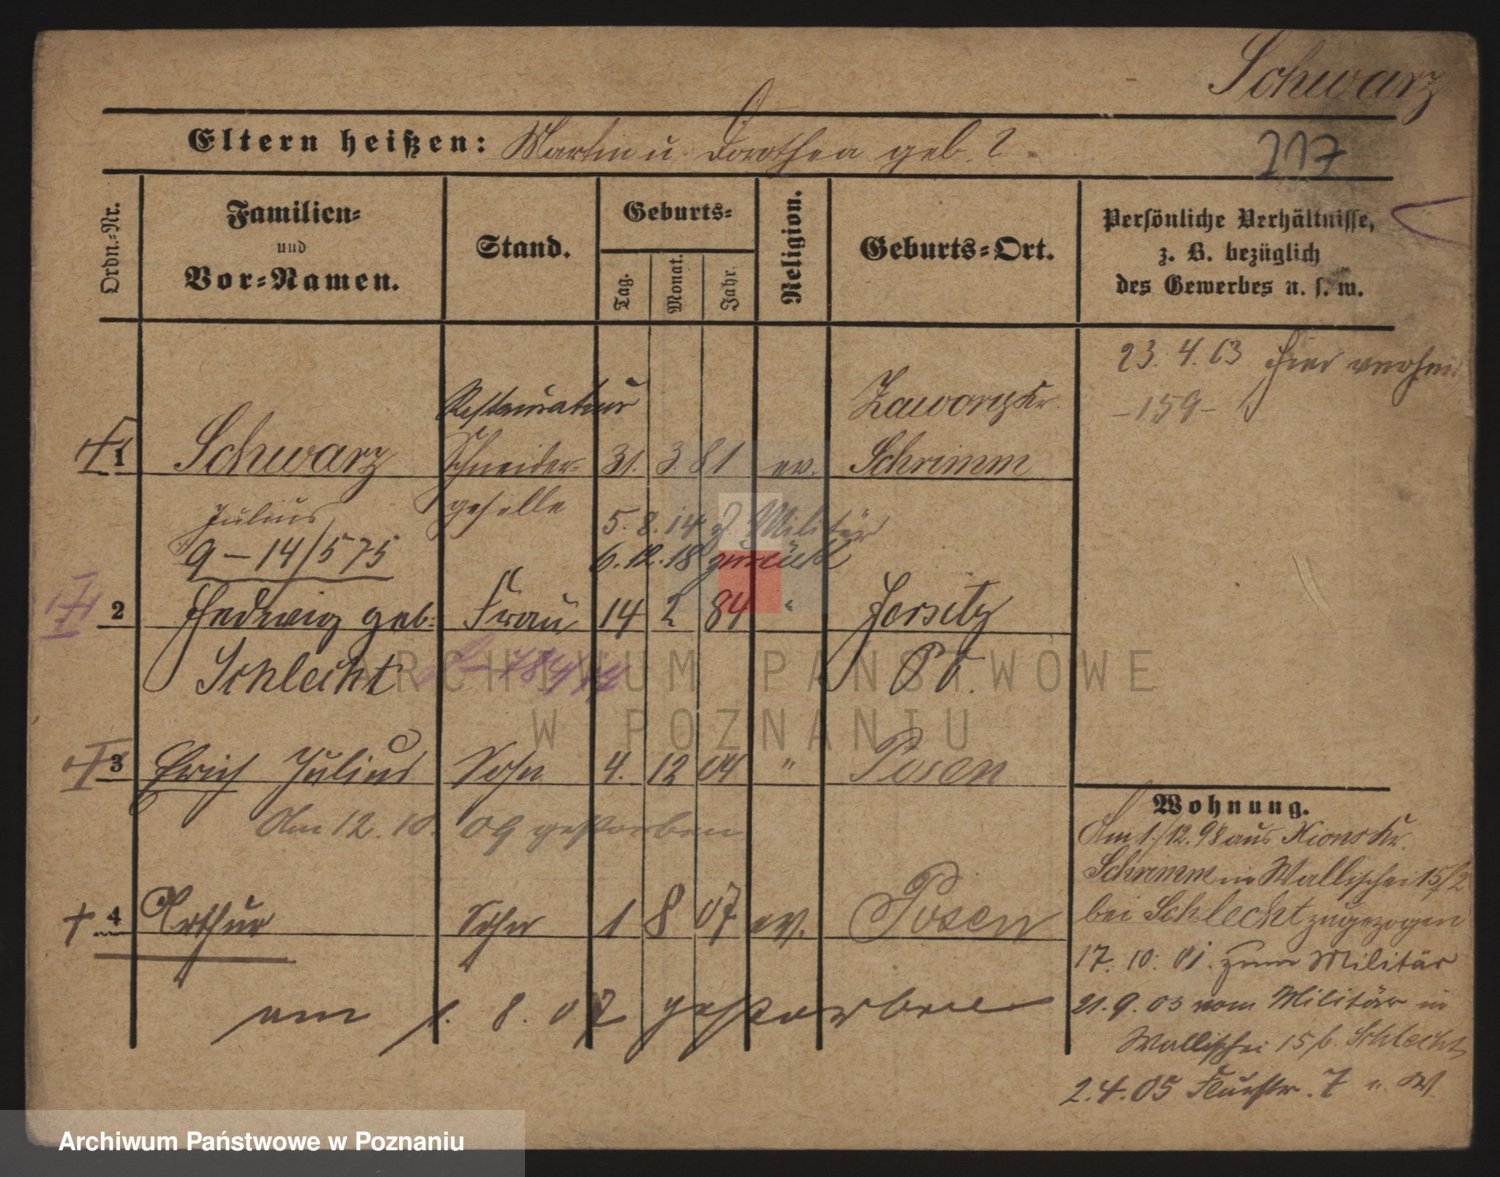 Schwarz
Eltern heißen: Martin u. Dorothea geb. ?
217
Ordn.-Nr.
Familien-
und
Vor-Namen.
Stand.
Geburts-
Tag.
Monat.
Jahr.
Religion.
Geburts-Ort.
Persönliche Verhältnisse,
z. B. bezüglich
des Gewerbes u. s. w.
23. 4. 03 hier
- 159 -
Restaurateur
1 Schwarz Schneider- 31. 3. 81 ev. Schrimm
Julius geselle
5. 8. 14 z. Militär
9 - 14/575
6. 12. 18 zurück
2 Hedwig geb. Frau 14 2 84 " Jersitz
Schlecht
P. O.
3 Erich Julius Sohn 4. 12 04 " Posen
Am 12. 10. 09 gestorben
4 Arthur Sohn 1 8 07 ev. Posen
am 1. 8. 07 gestorben
Wohnung.
Am 1./12. 98 aus Xions Kr.
Schrimm in Wallischei 15/2
bei Schlecht zugezogen
17. 10. 01. zum Militär
21. 9. 03 vom Militär in
Wallischei 15 b. Schlecht
2. 4. 05 Flurstr. 7 u. W.
ARCHIWUM PAŃSTWOWE
W POZNANIU
Archiwum Państwowe w Poznaniu